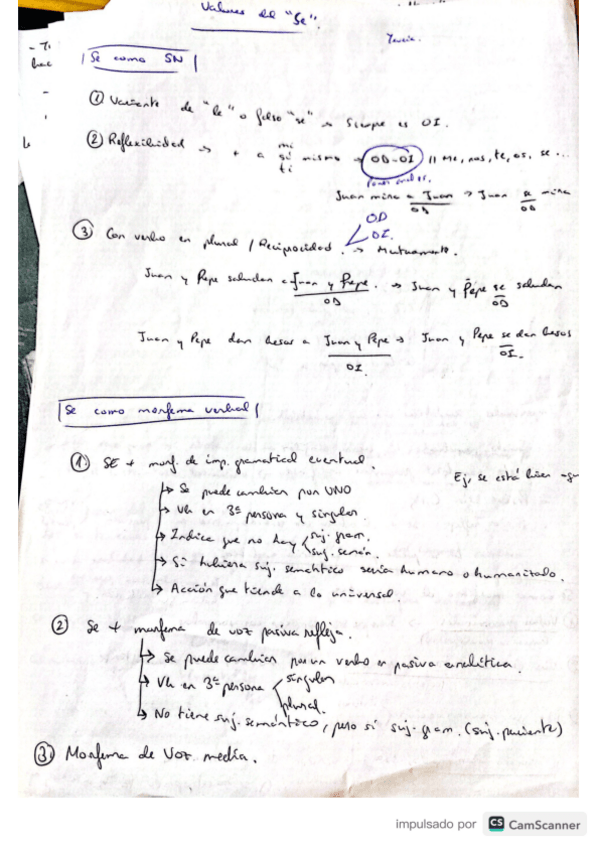 Valores del "Se".
Tercia.
Se como SN
① Variante de "le" o falso "se" → Siempre es OI.
② Reflexividad → + a mí sí ti mismo → OD-OI // Me, nos, te, os, se...
Juan mira a Juan → Juan se mira
OD OD
③ Con verbo en plural / Reciprocidad. → Mutuamente.
OD
OI.
Juan y Pepe saludan a Juan y Pepe. → Juan y Pepe se saludan
OD OD
Juan y Pepe dan besos a Juan y Pepe → Juan y Pepe se dan besos
OI. OI.
Se como morfema verbal
①. SE + morf. de imp. gramatical eventual.
Ej, se está bien aqu
Se puede cambiar por UNO
Vb en 3ª persona y singular.
Indice que no hay suj. gram.
suj. semán.
Si tubiera suj. semántico sería humano o humanitado.
Acción que tiende a lo universal.
② Se + morfema de voz pasiva refleja.
Se puede cambiar por un verbo en pasiva analítica.
Vb en 3ª persona singular
plural.
No tiene suj. semántico, pero sí suj. gram. (suj. paciente)
③ Morfema de Voz media.
impulsado por CS CamScanner